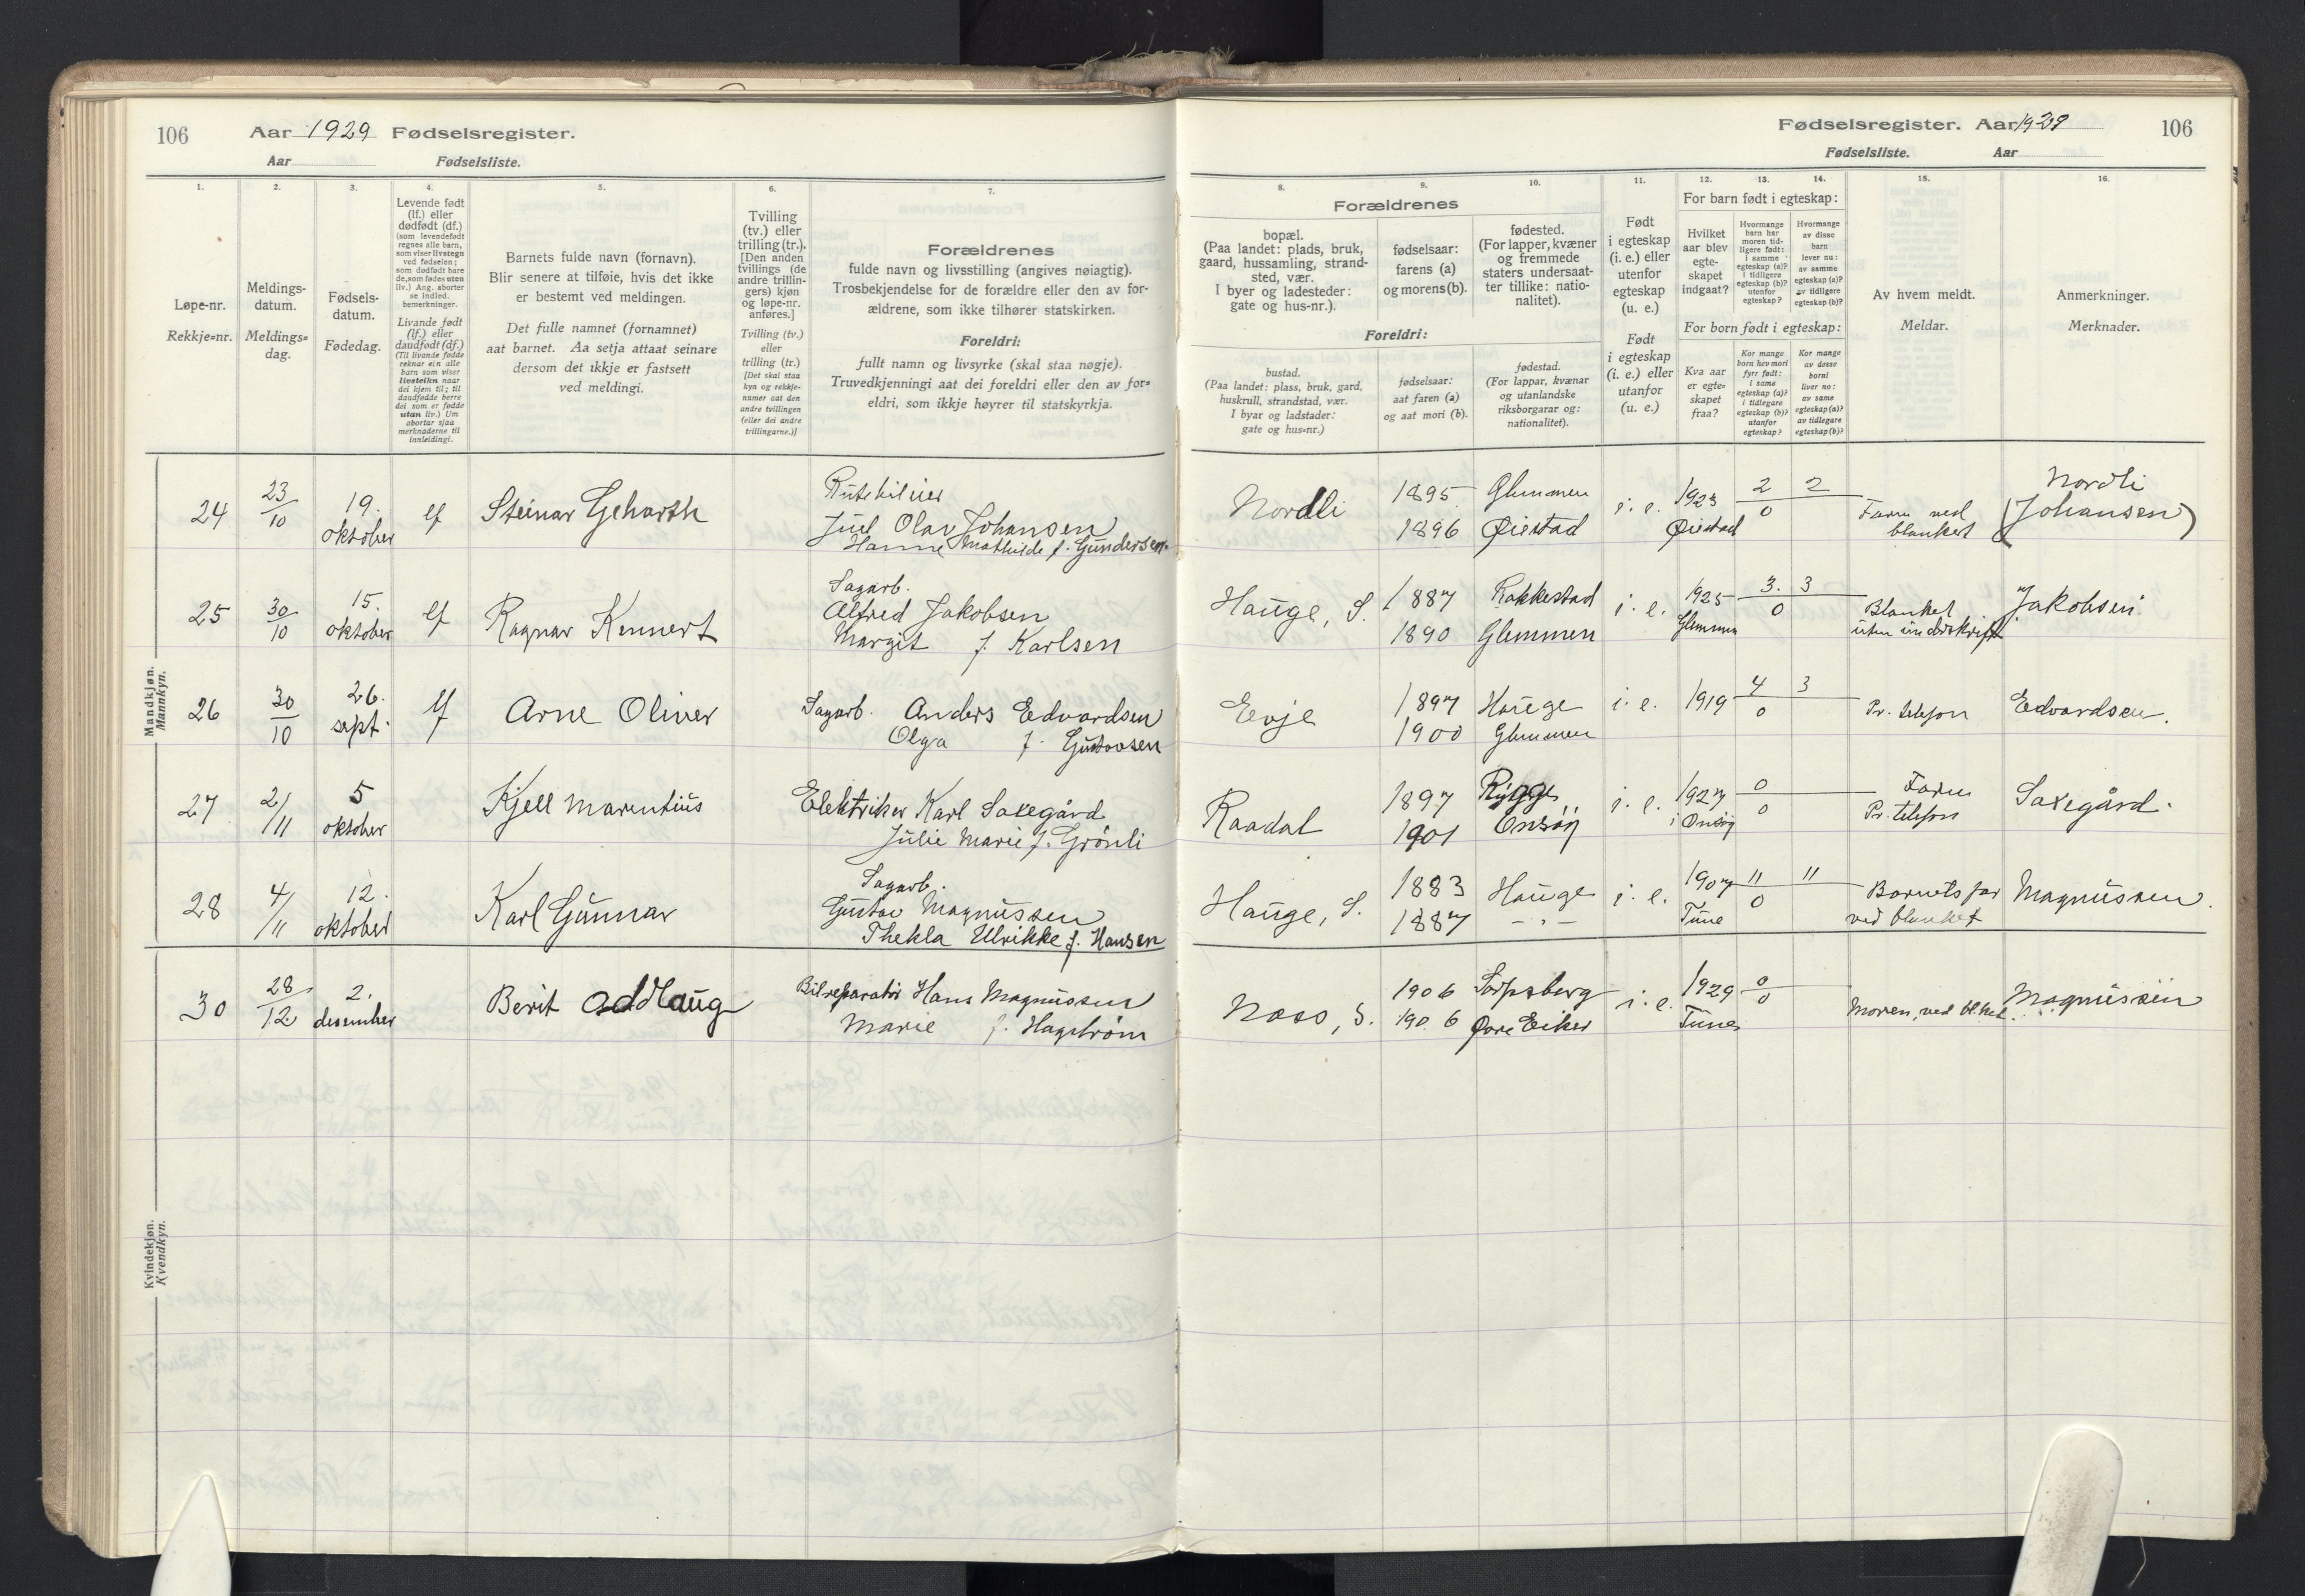 106 Aar 1929 Fødselsregister.
Aar Fødselsliste.
1.
Løpe-nr.
Rekkje=nr.
2.
Meldings-
datum.
Meldings=
dag.
3.
Fødsels-
datum.
Fødedag.
4.
Levende født
(lf.) eller
dødfødt (df.)
(som levendefødt
regnes alle barn,
som viser livstegn
ved fødselen;
som dødfødt bare
de, som fødes uten
liv.) Ang. aborter
se indled.
bemerkninger.
Livande født
(lf.) eller
daudfødt (df.)
(Til livande fødde
reknar ein alle
born som viser
livsteikn naar
dei kjem til; til
daudfødde berre
dei som er fødde
utan liv.) Um
abortar sjaa
merknaderne til
innleidingi.
5.
Barnets fulde navn (fornavn).
Blir senere at tilføie, hvis det ikke
er bestemt ved meldingen.
Det fulle namnet (fornamnet)
aat barnet. Aa setja attaat seinare
dersom det ikkje er fastsett
ved meldingi.
6.
Tvilling
(tv.) eller
trilling (tr.).
[Den anden
tvillings (de
andre trillin-
gers) kjøn
og løpe-nr.
anføres.]
Tvilling (tv.)
eller
trilling (tr.)
[Det skal staa
kyn og rekkje-
numer aat den
andre tvillingen
(eller dei andre
trillingarne.)]
7.
Forældrenes
fulde navn og livsstilling (angives nøiagtig).
Trosbekjendelse for de forældre eller den av for-
ældrene, som ikke tilhører statskirken.
Foreldri:
fullt namn og livsyrke (skal staa nøgje).
Truvedkjenningi aat dei foreldri eller den av for=
eldri, som ikkje høyrer til statskyrkja.
Mandkjøn.
Mannkyn.
24 23/10 19. oktober lf Steinar Geharth
Juel Olav Johansen
Hanne Mathilde f. Gundersen
25 30/10 15. oktober lf Ragnar Kennert
Sagarb.
Alfred Jakobsen
Margit f. Karlsen
26 30/10 26. sept. lf Arne Oliver
Sagarb. Anders Edvardsen
Olga f. Gustavsen
27 2/11 5 oktober Kjell Marentius
Elektriker Karl Saxegård
Julie Marie f. Grönli
28 4/11 12. oktober Karl Gunnar
Sagarb.
Gustav Magnussen
Thekla Ulrikke f. Hansen
Kvindekjøn.
Kvendkyn.
30 28/12 2. desember Berit Oddlaug
Bilreparatör Hans Magnussen
Marie f. Hagström
Fødselsregister. Aar 1929 106
Fødselsliste. Aar
8.
Forældrenes
bopæl.
(Paa landet: plads, bruk,
gaard, hussamling, strand-
sted, vær.
I byer og ladesteder:
gate og hus-nr.).
Foreldri:
bustad.
(Paa landet: plass, bruk, gard,
huskrull, strandstad, vær.
I byar og ladstader:
gate og hus=nr.)
9.
fødselsaar:
farens (a)
og morens (b).
fødselsaar:
aat faren (a)
og aat mori (b).
10.
fødested.
(For lapper, kvæner
og fremmede
staters undersaat-
ter tillike: natio-
nalitet).
fødestad.
(For lappar, kvænar
og utanlandske
riksborgarar og:
nationalitet).
11.
Født
i egteskap
(i. e.) eller
utenfor
egteskap
(u. e.)
Født
i egteskap
(i. e.) eller
utanfor
(u. e.)
For barn født i egteskap:
For born født i egteskap:
12.
Hvilket
aar blev
egte-
skapet
indgaat?
Kva aar
er egte=
skapet
fraa?
13.
Hvormange
barn har
moren tid-
ligere født:
i samme
egteskap (a)?
i tidligere
egteskap (b)?
utenfor
egteskap?
Kor mange
born hev mori
fyrr født:
i same
egteskap (a)?
i tidlegare
egteskap (b)?
utanfor
egteskap?
14.
Hvormange
av disse
barn
lever nu:
av samme
egteskap (a)?
av tidligere
egteskap (b)?
Kor mange
av desse
borni
liver no:
av same
egteskap (a)?
av tidlegare
egteskap (b)?
15.
Av hvem meldt.
Meldar.
16.
Anmerkninger.
Merknader.
Nordli 1895 Glemmen i. e. 1923 2 2 Nordli
1896 Øiestad Øiestad 0 Faren ved blanket (Johansen)
Hauge, S. 1887 Rakkestad i. e. 1925 3. 3 Jakobsen
1890 Glemmen Glemmen 0 Blanket uten underskrift
Evje 1897 Hauge i. e. 1919 4 3 Pr. telefon Edvardsen.
1900 Glemmen 0
Raadal 1897 Rygge i. e. 1927 0 Faren Saxegård.
1901 Onsøy i Onsøy 0 Pr. telefon
Hauge, S. 1883 Hauge i. e. 1907 11 11 Barnets far Magnussen.
1887 - " - Tune 0 ved blanket
Naso, S. 1906 Sarpsborg i. e. 1929 0 Magnussen
1906 Øvre Eiker Tune 0 Moren, ved bl.ket.